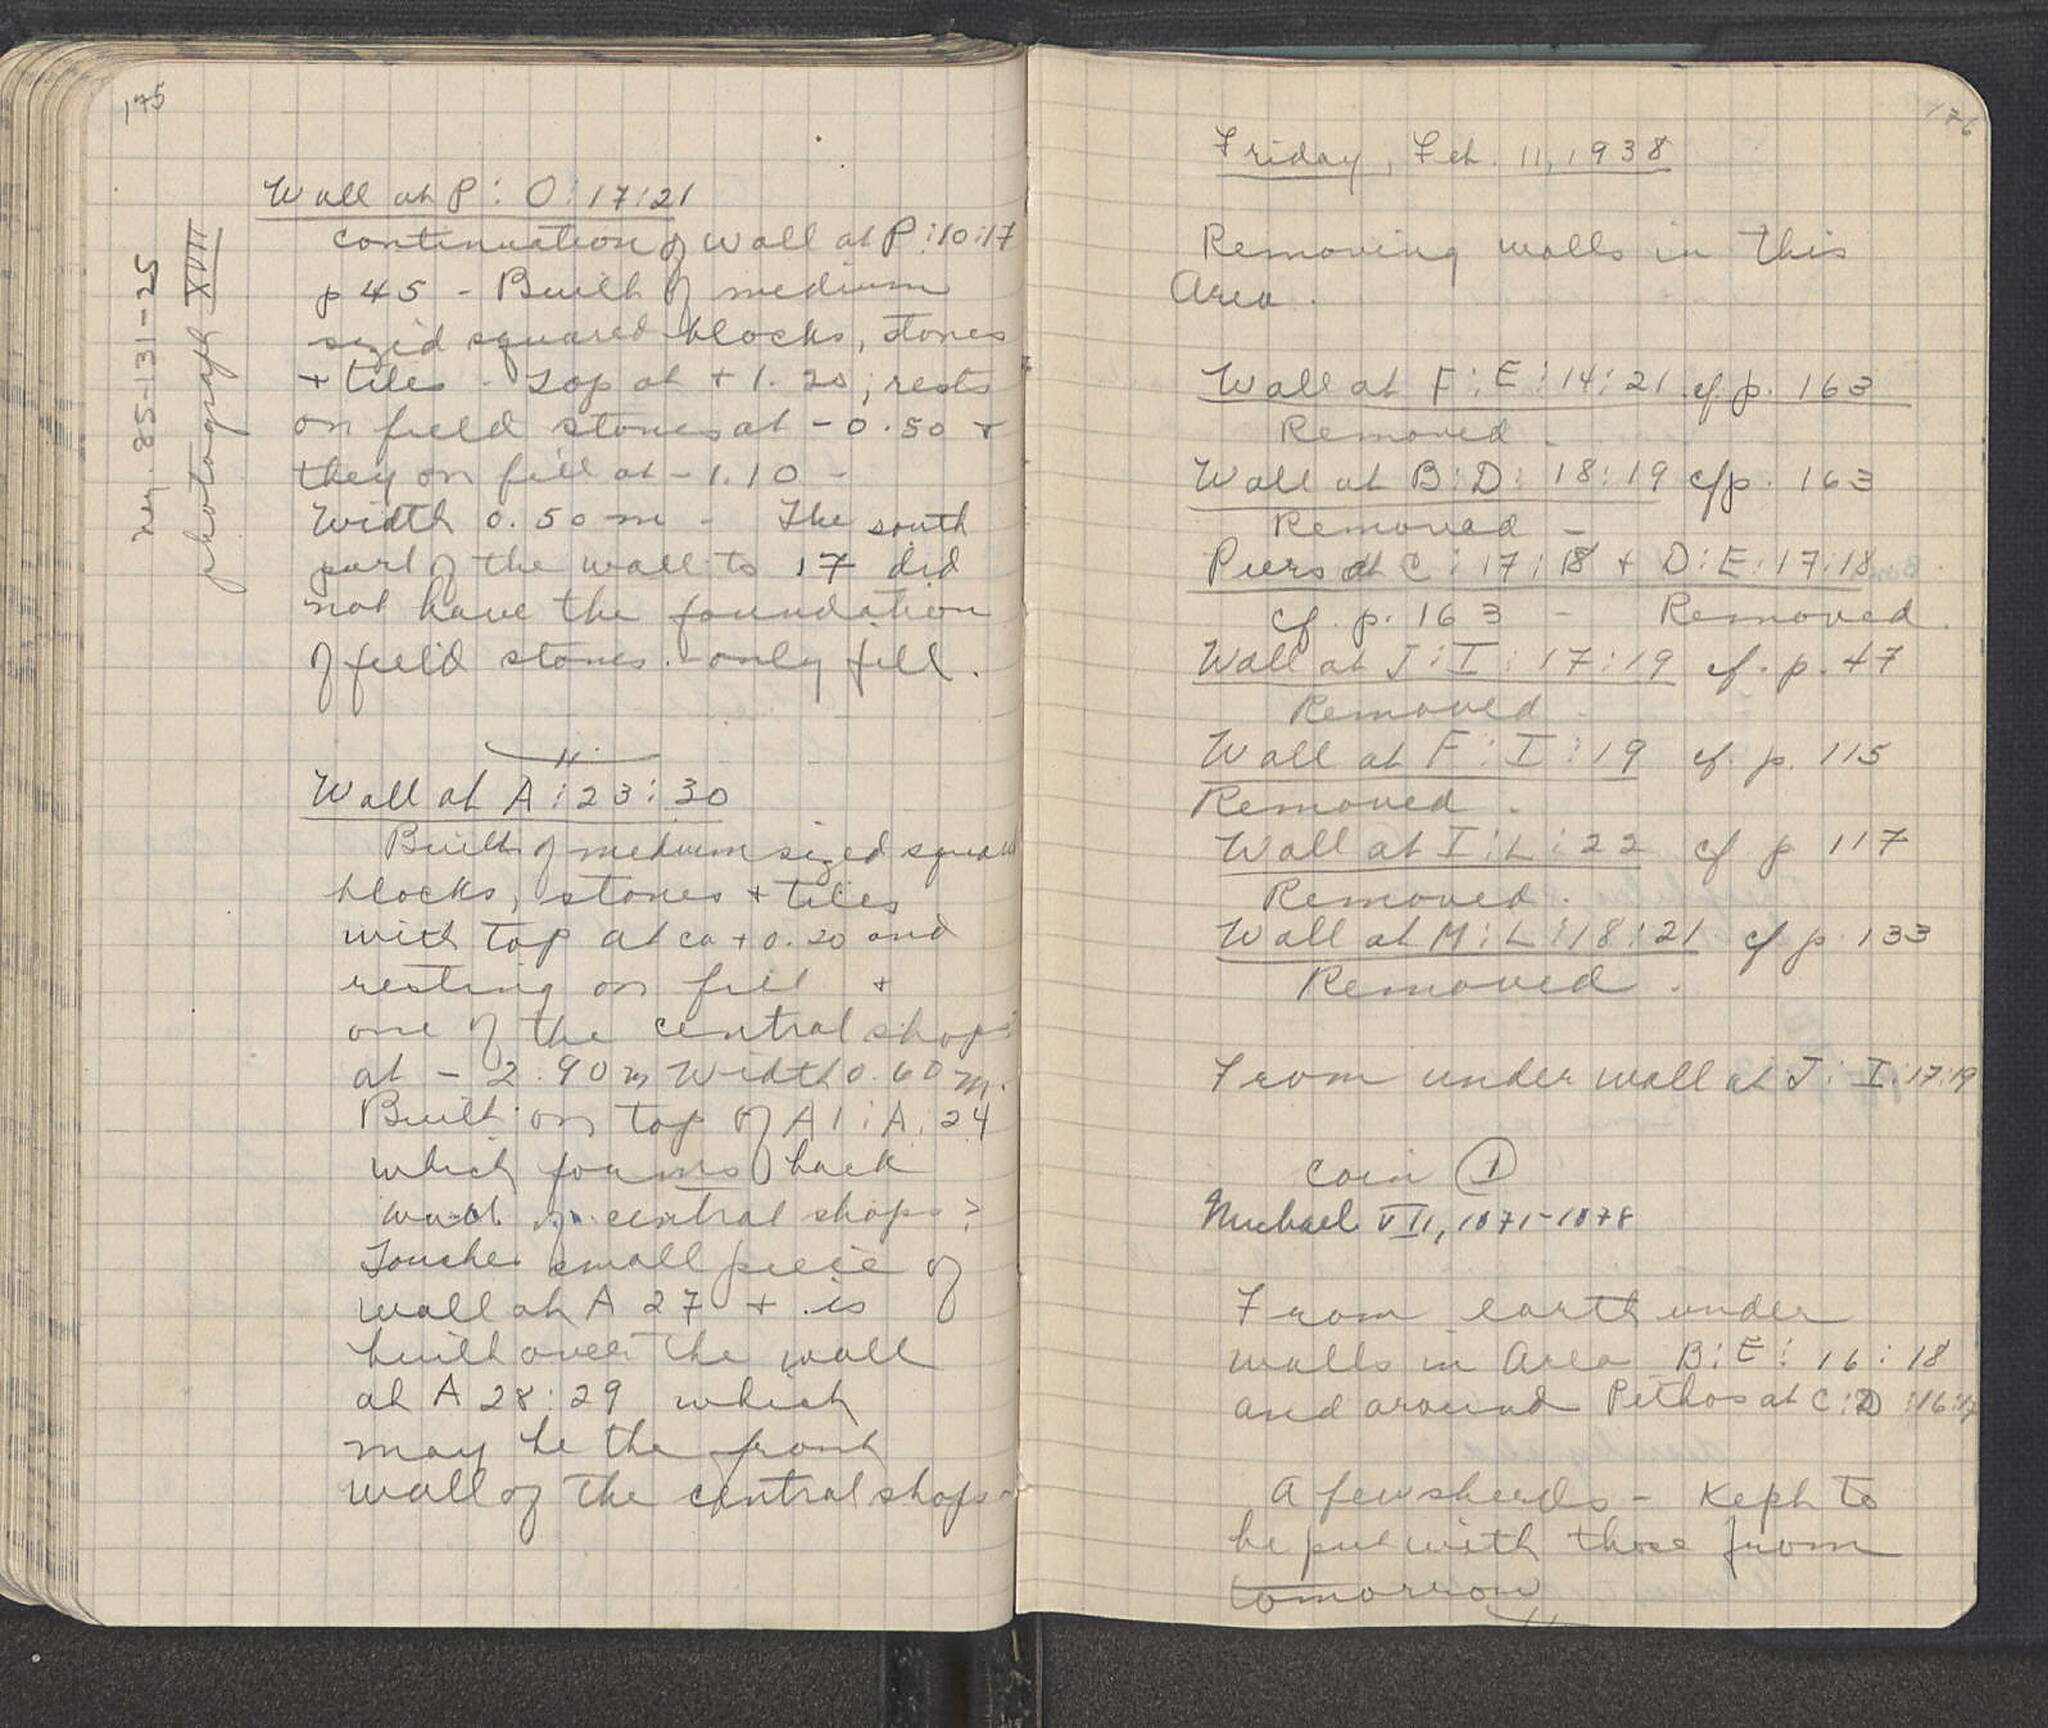 175
Wall at P : O : 17 : 21
continuation of wall at P : 10 : 17
p 45 - Built of medium
sized squared blocks, stones
+ tiles - Top at + 1.20; rests
on field stones at - 0.50 +
they on fill at - 1.10 -
Width 0.50 m - The south
part of the wall to 17 did
not have the foundation
of field stones - only fill.
Neg. 85-131-25
photograph XVIII
Wall at A : 23 : 30
Built of medium sized squared
blocks, stones + tiles
with top at ca + 0.20 and
resting on fill +
one of the central shops
at - 2.90 m Width 0.60 m.
Built on top of A1 : A : 24
which forms back
wall of central shops?
Touches small piece of
wall at A 27 + is
built over the wall
at A 28 : 29 which
may be the front
wall of the central shops -
176
Friday, Feb. 11, 1938
Removing walls in this
Area.
Wall at F : E : 14 : 21 cf. p. 163
Removed -
Wall at B : D : 18 : 19 cf p. 163
Removed -
Piers at C : 17 : 18 + D : E : 17 : 18
cf. p. 163 - Removed.
Wall at J : I : 17 : 19 cf. p. 47
Removed -
Wall at F : I : 19 cf. p. 115
Removed.
Wall at I : L : 22 cf p 117
Removed.
Wall at M : L : 18 : 21 cf p. 133
Removed.
From under wall at J : I : 17 : 19
coin 1
Michael VII, 1071-1078
From earth under
walls in Area B : E : 16 : 18
and around Pithos at C : D : 16 : 17
A few sherds - Kept to
be put with those from
tomorrow